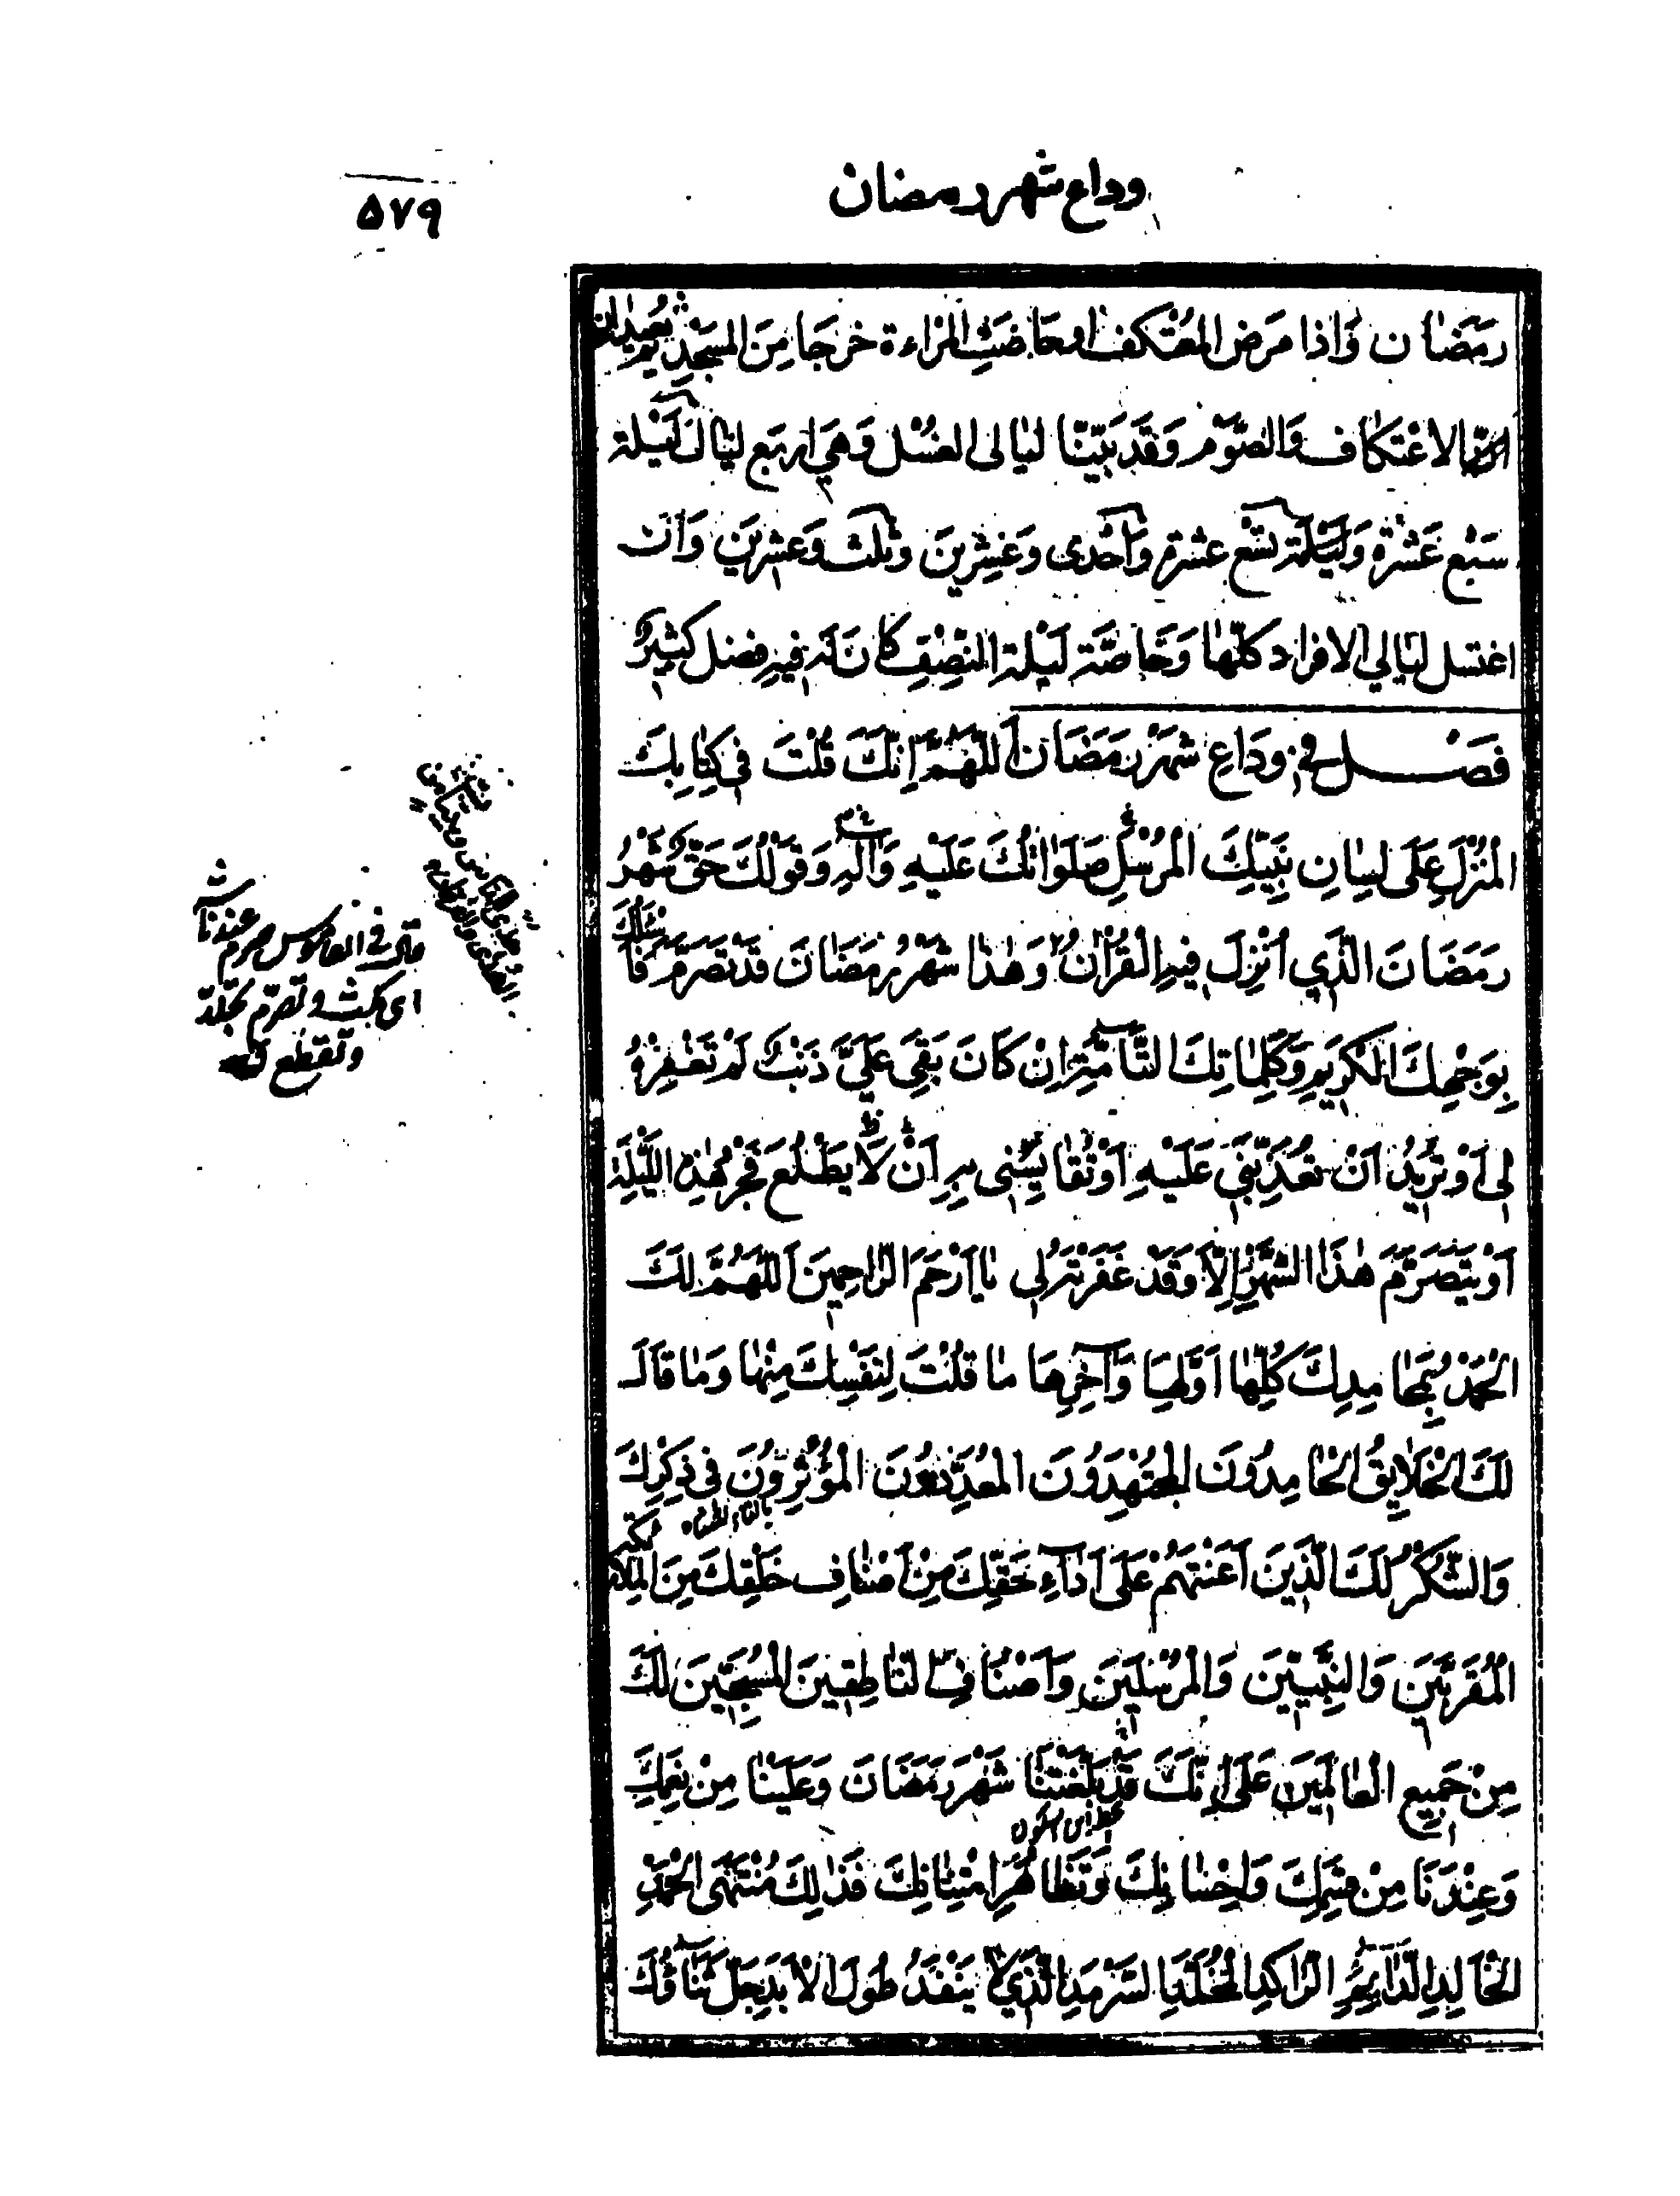 وداع شهر رمضان
۵۷۹
رمضان وَاذا مَرَض المُعْتَكف او حاضَتِ المراءة خرجَا مِنَ المسجد ثم يعيدان
الاعْتكاف وَالصَّوْم وَقَد بَيَّنّا ليالى الغسْل وَهَى اربَع ليال لَيْلة
سَبْع عَشْرة وَلَيْلة تسْع عشرة وَاحْدى وَعَشِرينَ وثلث وَعشرين وَان
اغتسل ليَالي الافراد كلّها وَخَاصَّة لَيْلة النّصِفِ كانَ لَه فيهِ فضل كثيرٌ
فَصْل فى وِدَاعِ شَهْر رَمَضَان اَللّهُمَّ اِنَّكَ قُلْتَ فى كِتابِكَ
المُنْزَلِ عَلَى لِسانِ نَبِيِّكَ المُرْسَلِ صَلَوَاتُكَ عَلَيْهِ وَآلِهِ وَقَوْلُكَ حَقٌّ شَهْرُ
رَمَضَانَ الَّذي اُنْزِلَ فيهِ الْقُرْآنُ وَهٰذا شَهْرُ رَمَضَانَ قَدْ تَصَرَّمَ فَاَسْئَلُكَ
بِوَجْهِكَ الْكَريمِ وَكَلِماتِكَ التَّآمَّةِ اِنْ كَانَ بَقِىَ عَلَيَّ ذَنْبٌ لَمْ تَغْفِرْهُ
لى اَوْ تُريدُ اَنْ تُعَذِّبَني عَلَيْهِ اَوْ تُقايِسَنى بِهِ اَنْ لا يَطْلُعَ فَجْرُ هٰذِهِ اللَّيْلَةِ
اَوْ يَتَصَرَّمَ هٰذَا الشَّهْرُ اِلّا وَقَدْ غَفَرْتَهُ لى يا اَرْحَمَ الرّاحِمينَ اَللّهُمَّ لَكَ
الْحَمْدُ بِمَحامِدِكَ كُلِّها اَوَّلِها وَآخِرِها ما قُلْتَ لِنَفْسِكَ مِنْها وَما قالَ
لَكَ الْخَلايِقُ الْحامِدُونَ الْمُجْتَهِدُونَ المُعَدِّدُونَ المُؤْثِرُونَ فى ذِكْرِكَ
وَالشُّكْرِ لَكَ الَّذينَ اَعَنْتَهُمْ عَلَى اَدآءِ حَقِّكَ مِنْ اَصْنافِ خَلْقِكَ مِنَ المَلائكة
المُقَرَّبينَ وَالنَّبِيّينَ وَالمُرْسَلينَ وَاَصْنافِ النّاطِقينَ المُسَبِّحينَ لَكَ
مِنْ جَميعِ الْعالَمينَ عَلى اِنَّكَ قَدْ بَلَّغْتَنا شَهْرَ رَمَضَانَ وَعَلَيْنا مِنْ نِعَمِكَ
وَعِنْدَنا مِنْ قِسَمِكَ وَاِحْسانِكَ وَتَظاهُرِ امْتِنانِكَ فَذلِكَ مُنْتَهَى الْحَمْدِ
الْخالِدِ الدّائِمِ الرّاكِدِ الْمُخَلَّدِ السَّرْمَدِ الَّذي لا يَنْفَدُ طُولَ الْاَبَدِ جَلَّ ثَنآؤُكَ
قال فى القاموس صرم عندنا
اى مكث وتصرّم تجلّد
وتقطع ق